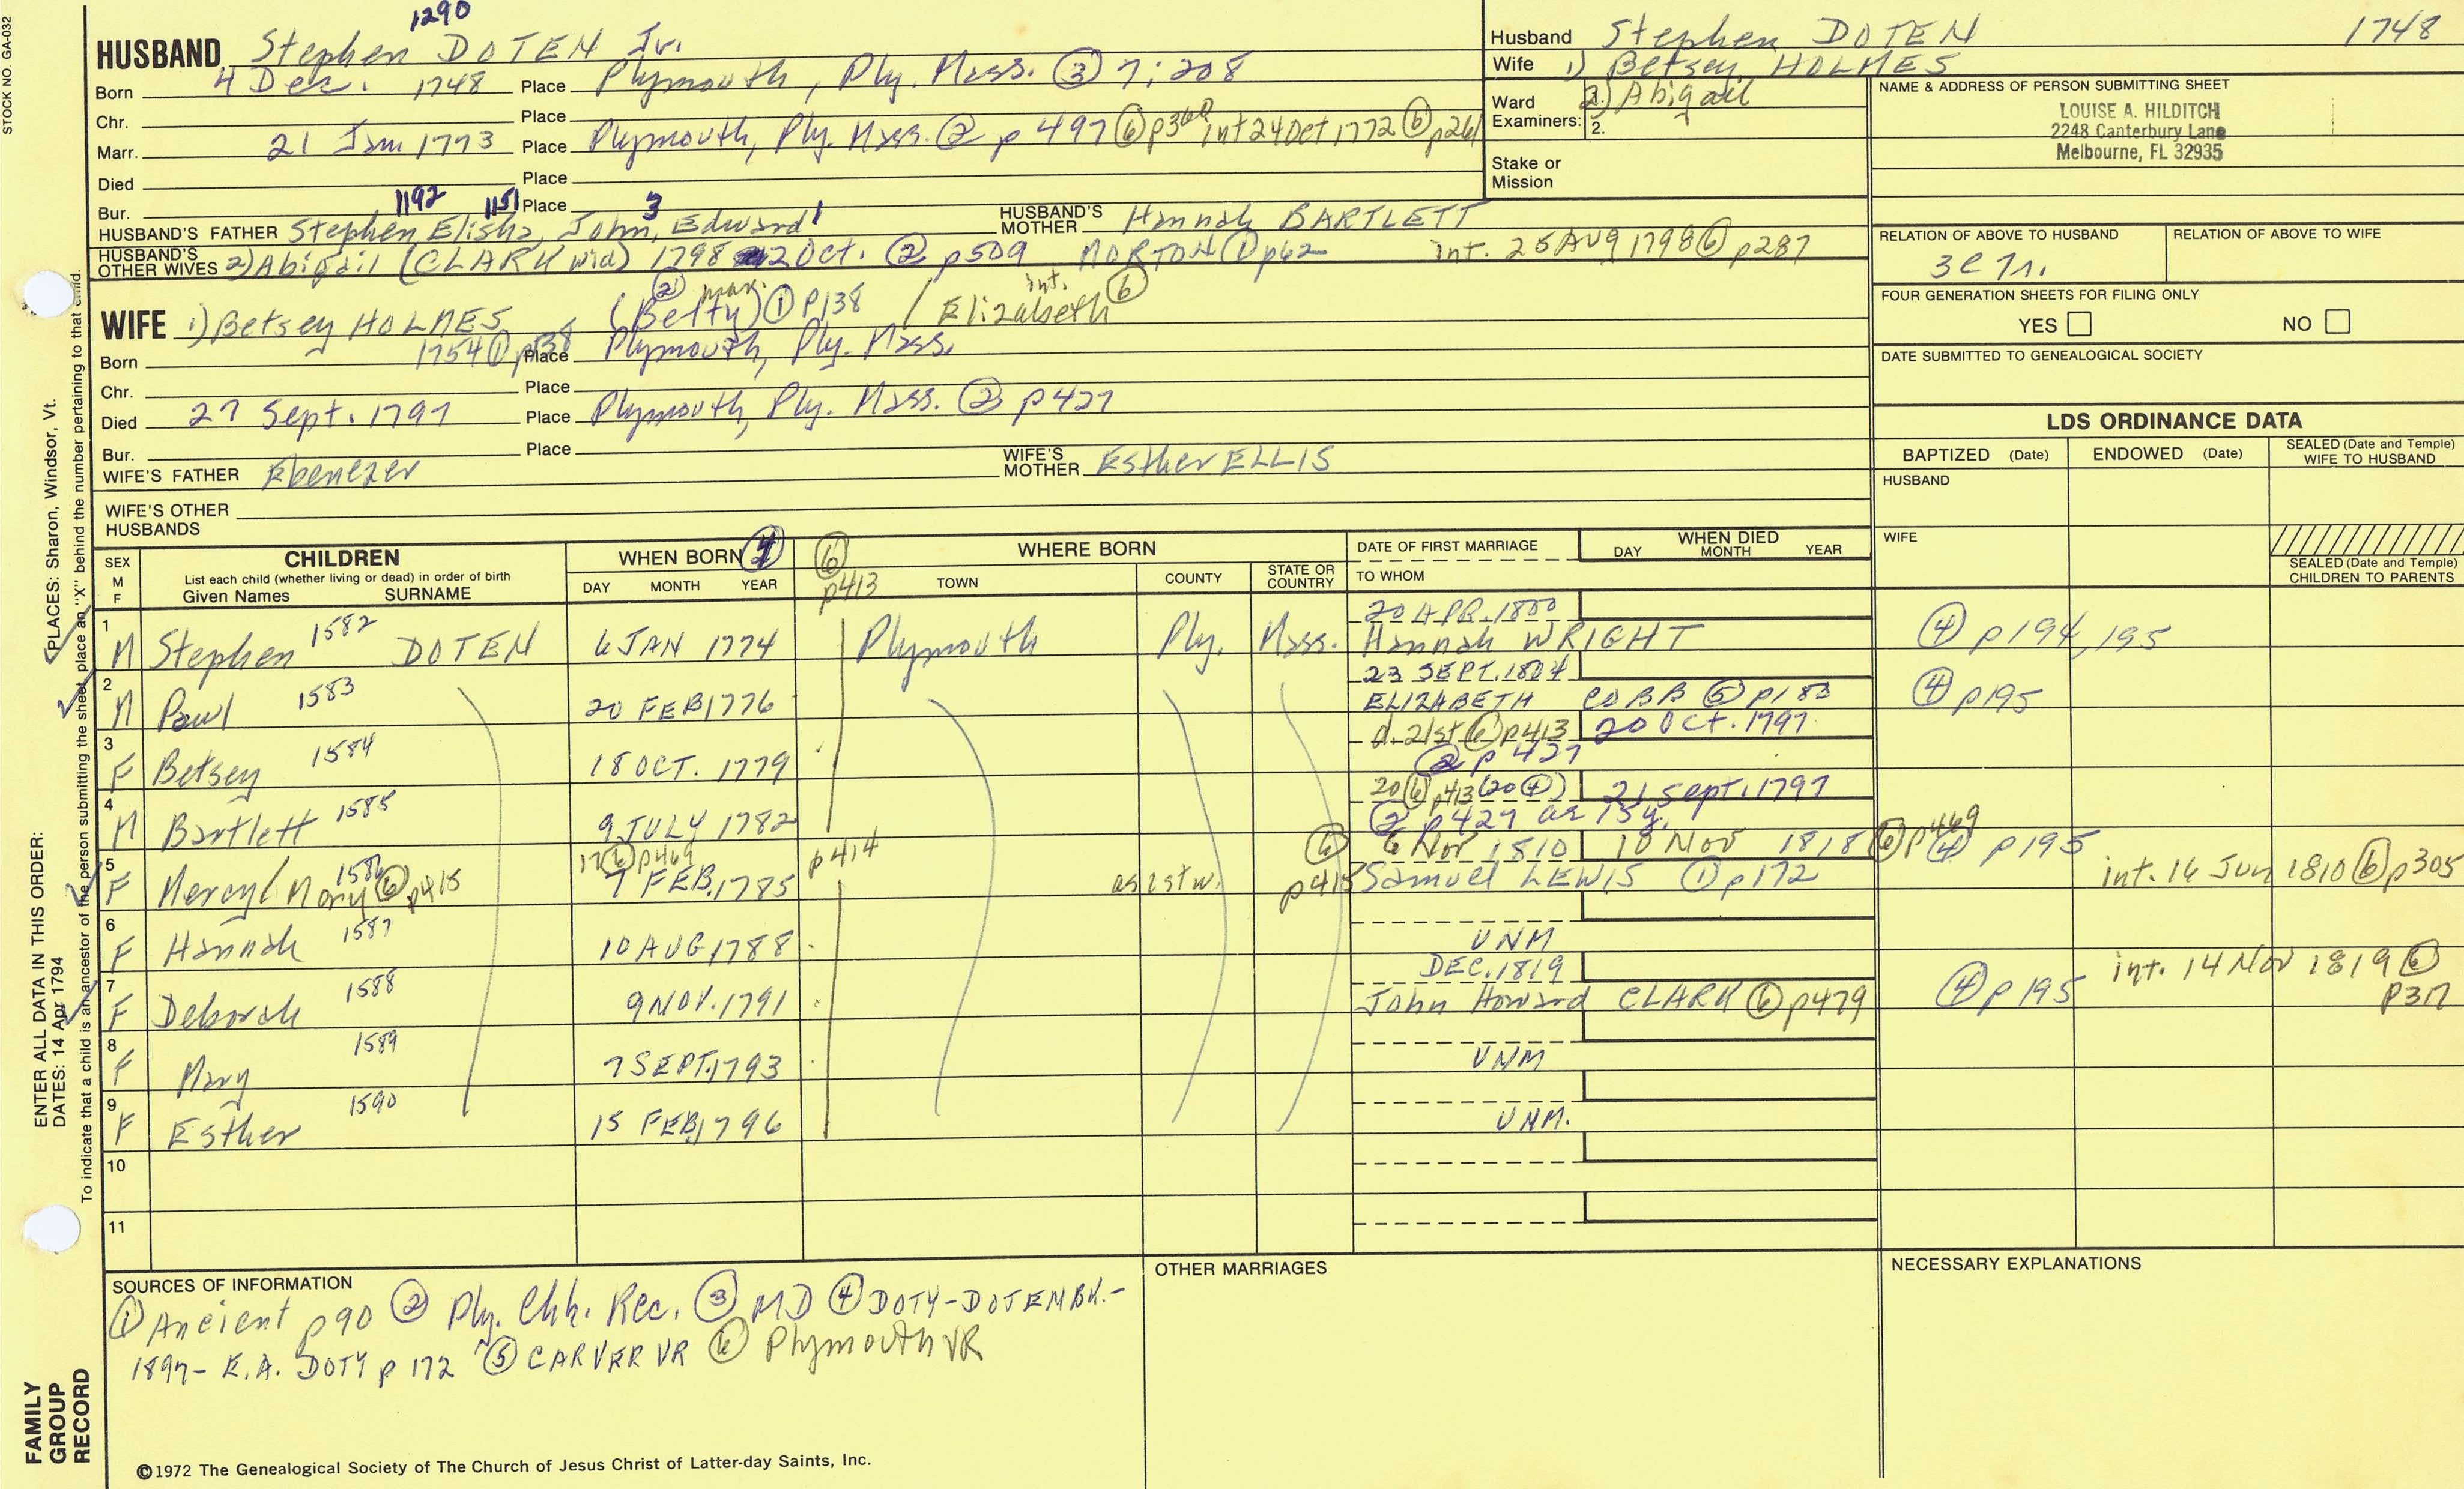 STOCK NO. GA-032
1290
HUSBAND Stephen DOTEN Jr.
Born 4 Dec. 1748 Place Plymouth, Ply. Mass. ③ 7:208
Chr. Place
Marr. 21 Jan 1773 Place Plymouth, Ply. Mass. ② p 497 ⑥ p360 int 24 Oct 1772 ⑥ p261
Died Place
Bur. Place
1192 1151 3 1
HUSBAND'S FATHER Stephen Elisha, John, Edward HUSBAND'S MOTHER Hannah BARTLETT
HUSBAND'S OTHER WIVES 2) Abigail (CLARK wid) 1798 2 Oct. ② p509 MORTON ① p62 int. 25 AUG 1798 ⑥ p287
Husband Stephen DOTEN 1748
Wife 1) Betsey HOLMES
2) Abigail
Ward Examiners: 1.
2.
Stake or Mission
NAME & ADDRESS OF PERSON SUBMITTING SHEET
LOUISE A. HILDITCH
2248 Canterbury Lane
Melbourne, FL 32935
RELATION OF ABOVE TO HUSBAND RELATION OF ABOVE TO WIFE
FOUR GENERATION SHEETS FOR FILING ONLY
YES NO
DATE SUBMITTED TO GENEALOGICAL SOCIETY
② mar. int. ⑥
WIFE 1) Betsey HOLMES (Betty) ① p138 / Elizabeth
Born 1754 ① p138 Place Plymouth, Ply. Mass.
Chr. Place
Died 27 Sept. 1797 Place Plymouth, Ply. Mass. ② p427
Bur. Place
WIFE'S FATHER Ebenezer WIFE'S MOTHER Esther ELLIS
WIFE'S OTHER HUSBANDS
LDS ORDINANCE DATA
BAPTIZED (Date) ENDOWED (Date) SEALED (Date and Temple) WIFE TO HUSBAND
HUSBAND
WIFE
SEALED (Date and Temple) CHILDREN TO PARENTS
SEX M F
CHILDREN
List each child (whether living or dead) in order of birth
Given Names SURNAME
WHEN BORN ④
DAY MONTH YEAR
⑥ p413
WHERE BORN
TOWN COUNTY STATE OR COUNTRY
DATE OF FIRST MARRIAGE
TO WHOM
WHEN DIED
DAY MONTH YEAR
1 M Stephen 1582 DOTEN 6 JAN 1774 Plymouth Ply. Mass. 20 APR. 1800 Hannah WRIGHT ④ p194, 195
2 M Paul 1583 20 FEB 1776 23 SEPT. 1804 ELIZABETH COBB ⑤ p183 ④ p195
3 F Betsey 1584 18 OCT. 1779 d. 21st ⑥ p413 20 Oct. 1797 ② p 427
4 M Bartlett 1585 9 JULY 1782 20 ⑥ p413 (20 ④) 21 Sept. 1797 ② p427 as 15y.
5 F Mercy/Mary 1586 ⑥ p415 17 ⑥ p469 7 FEB. 1785 p414 as 1st w. ⑥ p415 6 Nov 1810 10 Nov 1818 ⑥ p469 Samuel LEWIS ① p172 ④ p195 int. 16 Jun 1810 ⑥ p305
6 F Hannah 1587 10 AUG 1788 UNM
7 F Deborah 1588 9 NOV. 1791 DEC. 1819 John Howard CLARK ⑥ p479 ④ p195 int. 14 Nov 1819 ⑥ p317
8 F Mary 1589 7 SEPT. 1793 UNM
9 F Esther 1590 15 FEB. 1796 UNM.
10
11
SOURCES OF INFORMATION
① Ancient p90 ② Ply. Chh. Rec. ③ MD ④ DOTY-DOTEN BK.-
1897- E.A. DOTY p 172 ⑤ CARVER VR ⑥ Plymouth VR
OTHER MARRIAGES
NECESSARY EXPLANATIONS
©1972 The Genealogical Society of The Church of Jesus Christ of Latter-day Saints, Inc.
ENTER ALL DATA IN THIS ORDER:
DATES: 14 Apr 1794
PLACES: Sharon, Windsor, Vt.
To indicate that a child is an ancestor of the person submitting the sheet, place an "X" behind the number pertaining to that child.
FAMILY
GROUP
RECORD